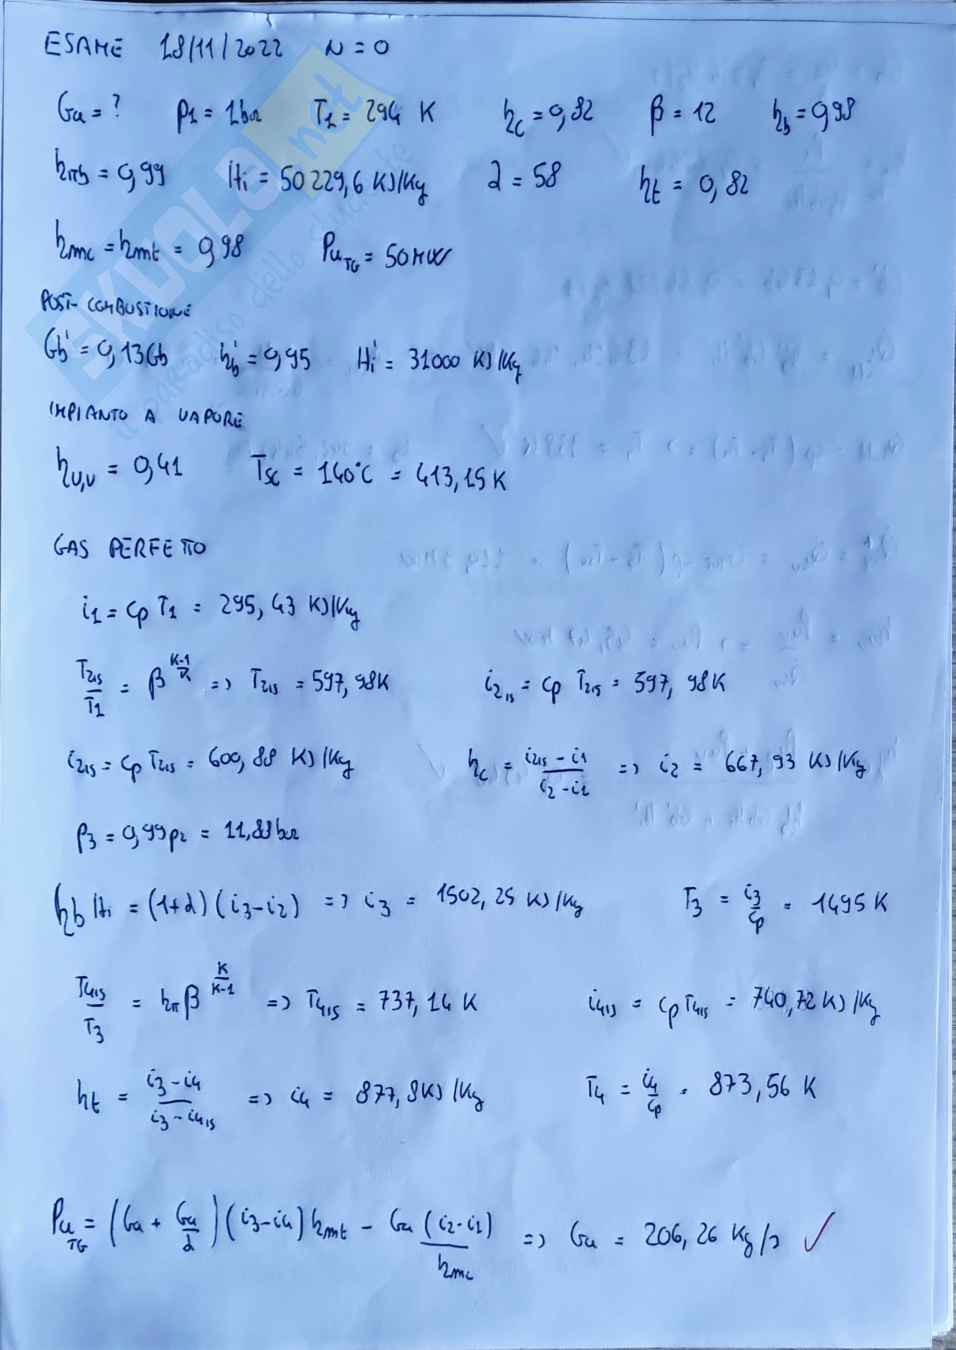 ESAME 18/11/2022 N=0
Ga = ? p1 = 1bar T1 = 294 K ηc = 0,82 β = 12 ηb = 0,98
ηπb = 0,99 Hi = 50229,6 KJ/Kg α = 58 ηt = 0,82
ηmc = ηmt = 0,98 Pu TG = 50MW
POST-COMBUSTIONE
Gb' = 0,13Gb ηb' = 0,95 Hi' = 31000 KJ/Kg
IMPIANTO A VAPORE
ηu,v = 0,41 Tsc = 140°C = 413,15K
GAS PERFETTO
i1 = cp T1 = 295,43 KJ/Kg
T2is/T1 = β^(K-1/K) => T2is = 597,98K i2is = cp T2is = 597,98K
i2is = cp T2is = 600,88 KJ/Kg ηc = (i2is - i1)/(i2 - i1) => i2 = 667,93 KJ/Kg
p3 = 0,99p2 = 11,88bar
ηb Hi = (1+α)(i3-i2) => i3 = 1502,25 KJ/Kg T3 = i3/cp = 1495 K
T4is/T3 = ηπ β^(K/K-1) => T4is = 737,14 K i4is = cp T4is = 740,72 KJ/Kg
ηt = (i3-i4)/(i3-i4is) => i4 = 877,8KJ/Kg T4 = i4/cp = 873,56 K
Pu TG = (Ga + Ga/α)(i3-i4)ηmt - Ga (i2-i1)/ηmc => Ga = 206,26 Kg/s ✓
SKUOLA.net
il paradiso dello studente